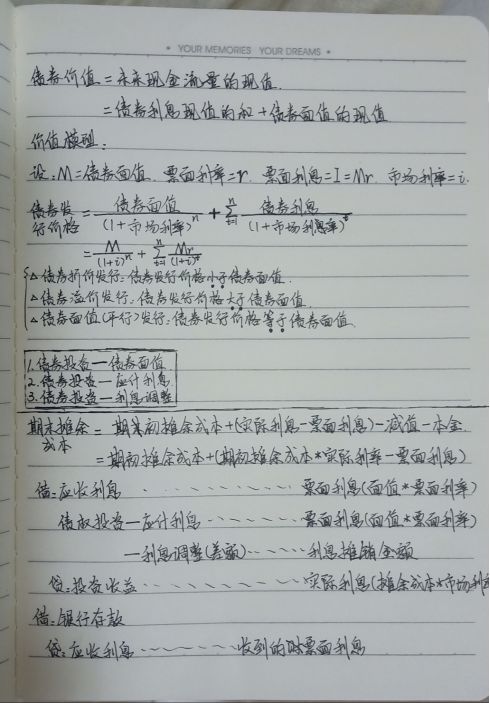 YOUR MEMORIES YOUR DREAMS
债券价值=未来现金流量的现值.
=债券利息现值的和+债券面值的现值
价值模型:
设:M=债券面值. 票面利率=r. 票面利息=I=Mr. 市场利率=i.
债券发行价格=债券面值/(1+市场利率)^n+∑(t=1,n)债券利息/(1+市场利息率)^t
=M/(1+i)^n+∑(t=1,n)Mr/(1+i)^t
△债券折价发行:债券发行价格小于债券面值.
△债券溢价发行:债券发行价格大于债券面值.
△债券面值(平行)发行:债券发行价格等于债券面值.
1.债券投资一债券面值
2.债券投资一应计利息
3.债券投资一利息调整
期末摊余成本=期末初摊余成本+(实际利息-票面利息)-减值-本金.
=期初摊余成本+(期初摊余成本*实际利率-票面利息)
借:应收利息 票面利息(面值*票面利率)
债权投资一应计利息 票面利息(面值*票面利率)
一利息调整(差额) 利息摊销金额
贷:投资收益 实际利息(摊余成本*市场利率
借:银行存款
贷:应收利息 收到的时票面利息